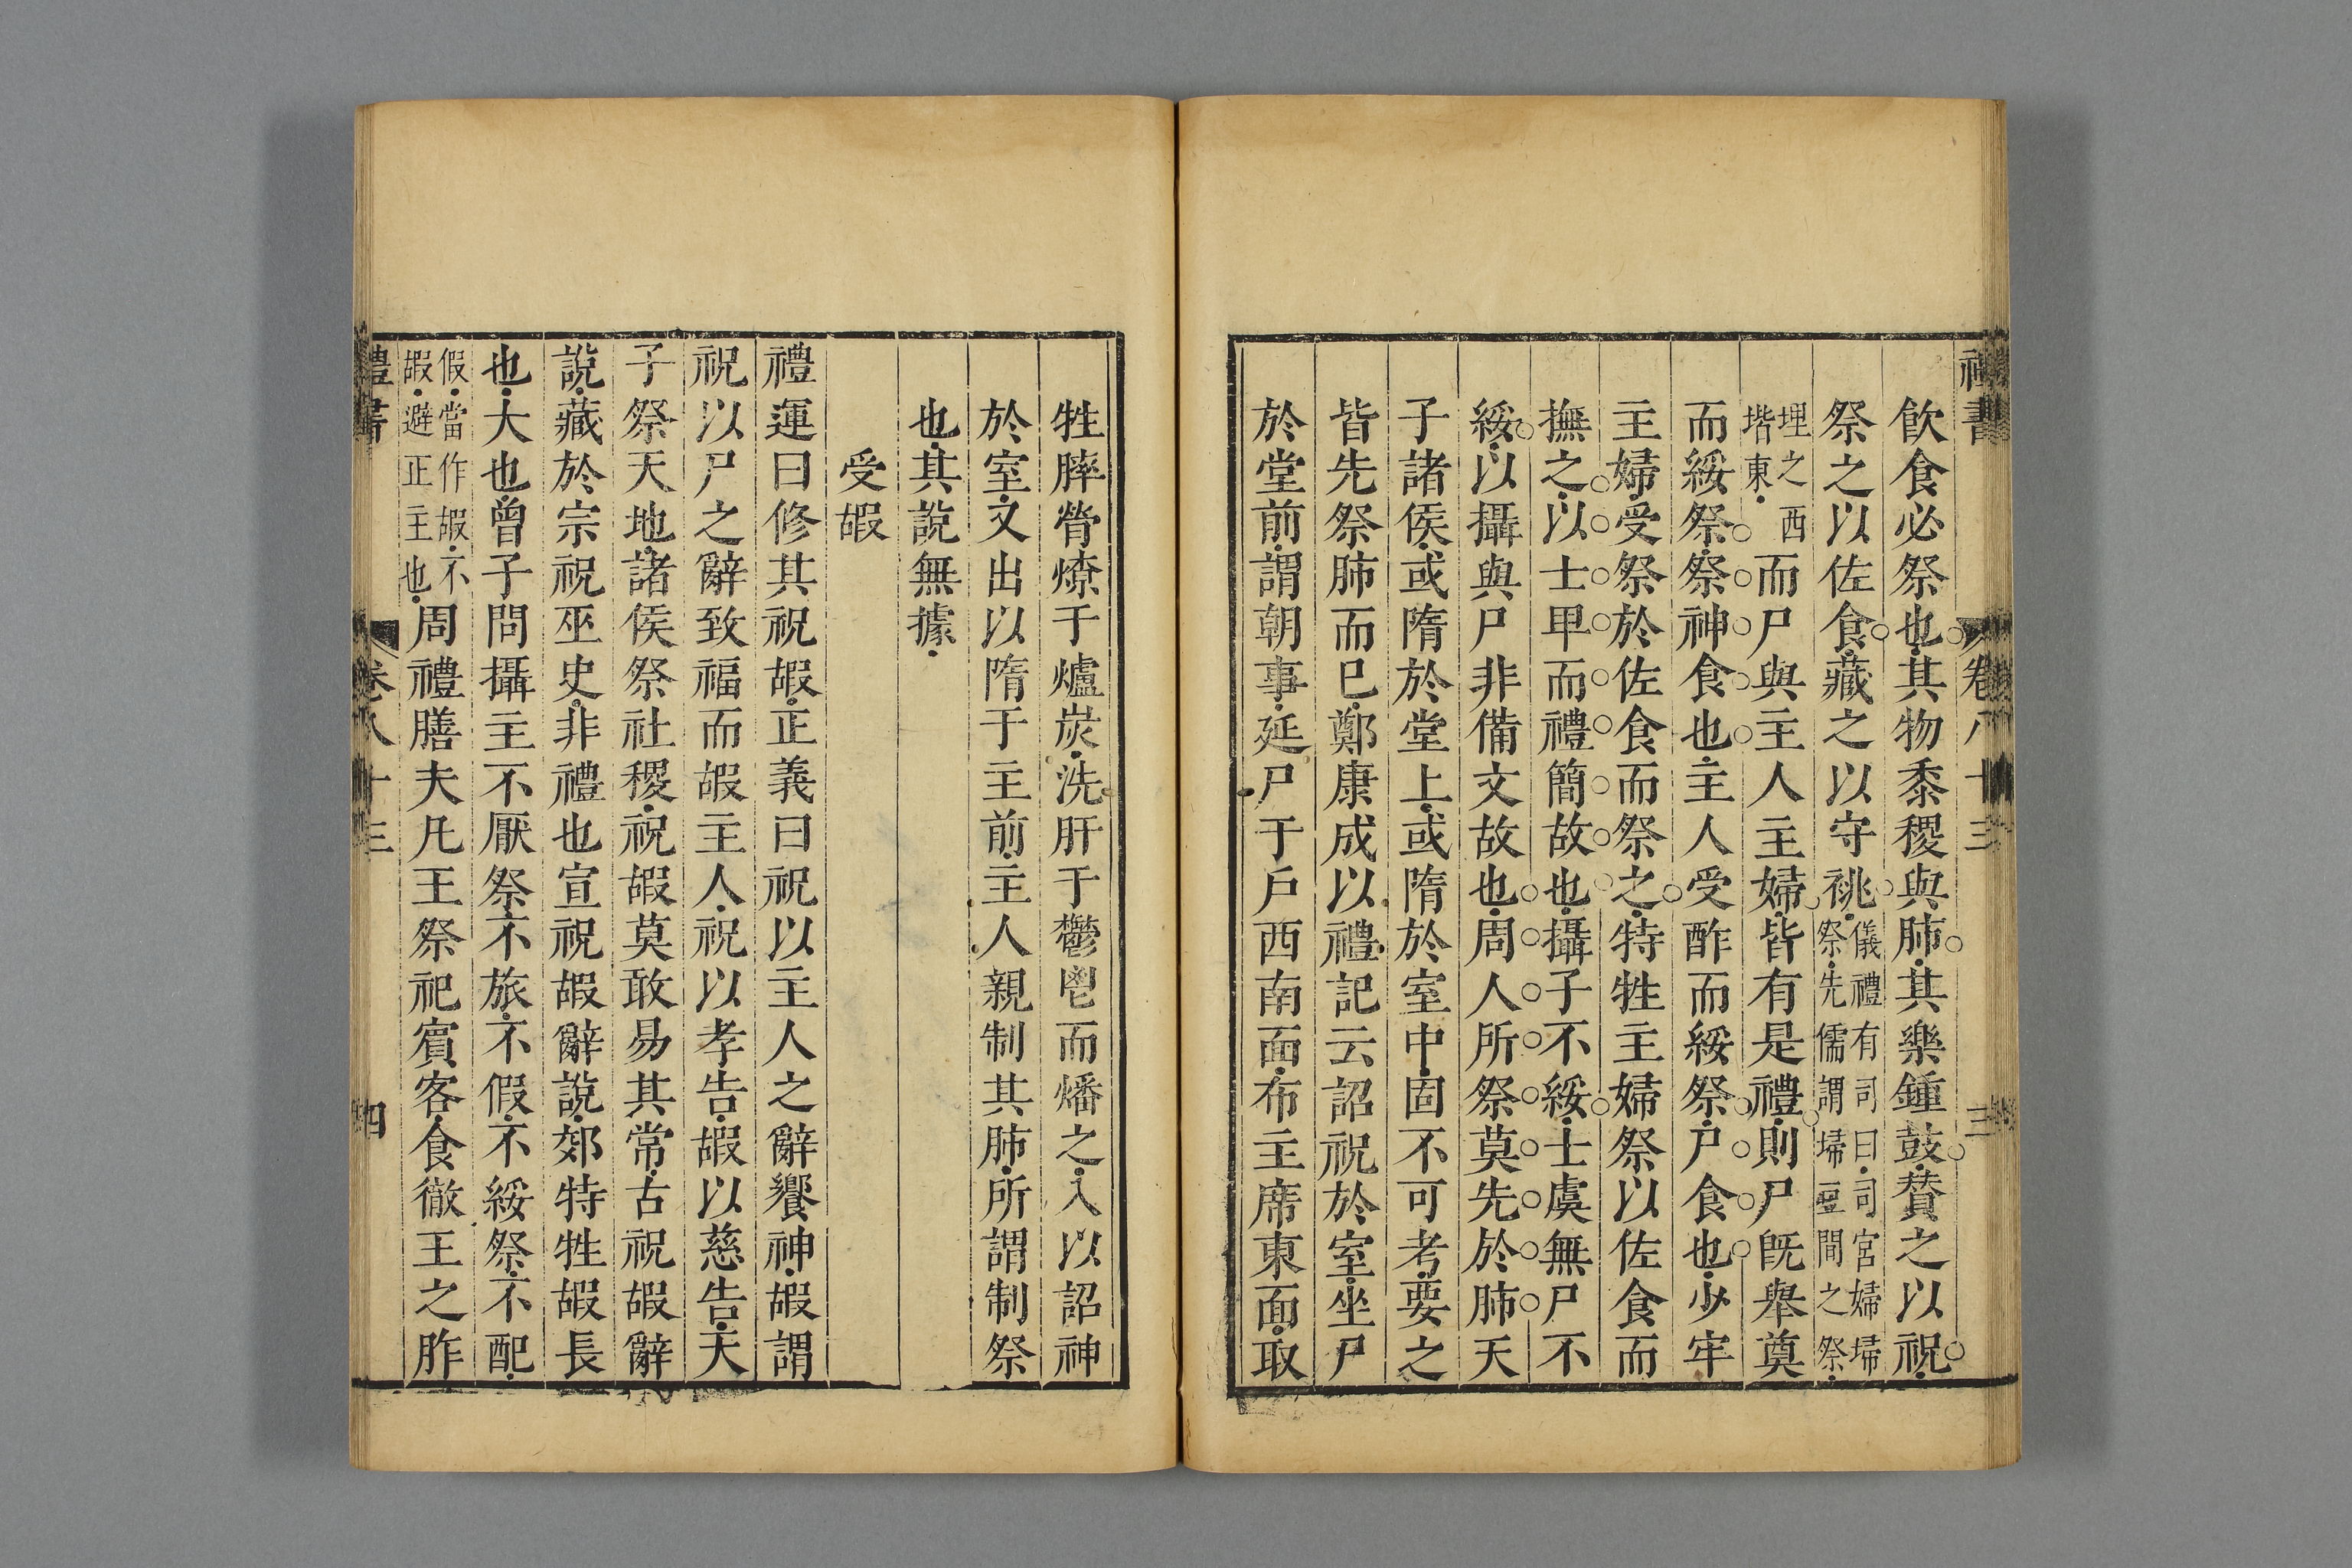 禮書 卷八十三 三
飲食必祭也其物黍稷與肺其樂鍾鼓贊之以祝
祭之以佐食藏之以守祧儀禮有司曰司宮婦埽祭先儒謂埽豆間之祭
埋之西堦東而尸與主人主婦皆有是禮則尸旣舉奠
而綏祭祭神食也主人受酢而綏祭尸食也少牢
主婦受祭於佐食而祭之特牲主婦祭以佐食而
撫之以士卑而禮簡故也攝子不綏士虞無尸不
綏以攝與尸非備文故也周人所祭莫先於肺天
子諸侯或隋於堂上或隋於室中固不可考要之
皆先祭肺而已鄭康成以禮記云詔祝於室坐尸
於堂前謂朝事延尸于戶西南面布主席東面取
牲膟膋燎于爐炭洗肝于鬱鬯而燔之入以詔神
於室又出以隋于主前主人親制其肺所謂制祭
也其說無據
受嘏
禮運曰修其祝嘏正義曰祝以主人之辭饗神嘏謂
祝以尸之辭致福而嘏主人祝以孝告嘏以慈告天
子祭天地諸侯祭社稷祝嘏莫敢易其常古祝嘏辭
說藏於宗祝巫史非禮也宣祝嘏辭說郊特牲嘏長
也大也曾子問攝主不厭祭不旅不假不綏祭不配
假當作嘏不嘏避正主也周禮膳夫凡王祭祀賓客食徹王之胙
禮書 卷八十三 四